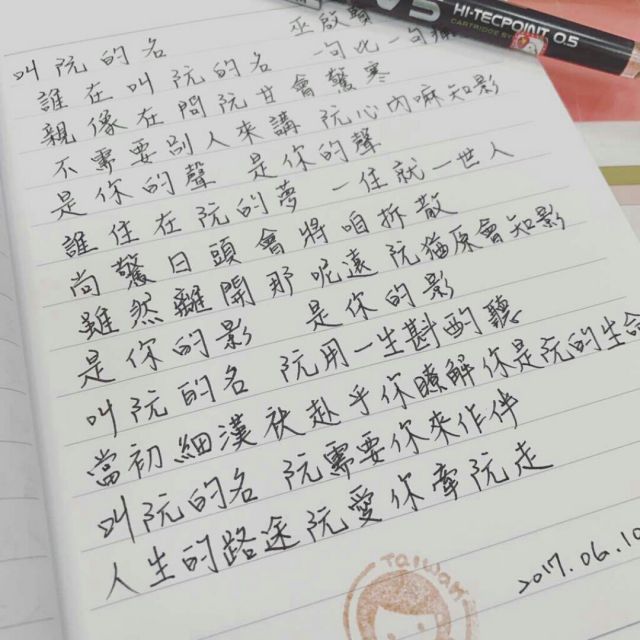 V5 HI-TECPOINT 0.5
CARTRIDGE
叫阮的名 巫啟
誰在叫阮的名 一句也一句
親像在問阮甘會驚寒
不需要別人來講 阮心內嘛知影
是你的聲 是你的聲
誰住在阮的夢 一住就一世人
尚驚日頭會將咱拆散
雖然離開那呢遠 阮猶原會知影
是你的影 是你的影
叫阮的名 阮用一生斟酌聽
當初細漢袂赴乎你瞭解你是阮的生命
叫阮的名 阮需要你來作伴
人生的路途阮愛你牽阮走
2017.06.10
TAIWAN